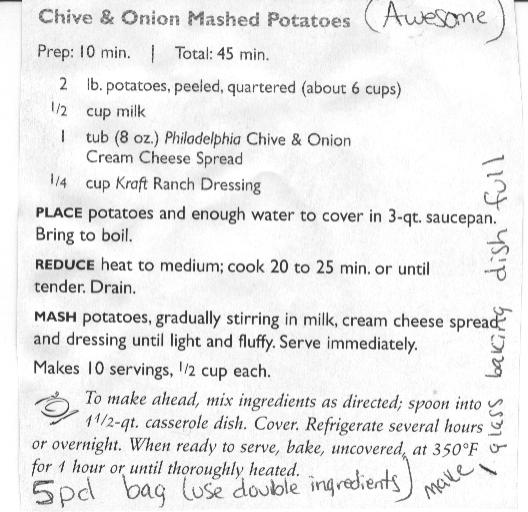 Chive & Onion Mashed Potatoes (Awesome)
Prep: 10 min. | Total: 45 min.
2 lb. potatoes, peeled, quartered (about 6 cups)
1/2 cup milk
1 tub (8 oz.) Philadelphia Chive & Onion
Cream Cheese Spread
1/4 cup Kraft Ranch Dressing
PLACE potatoes and enough water to cover in 3-qt. saucepan.
Bring to boil.
REDUCE heat to medium; cook 20 to 25 min. or until
tender. Drain.
MASH potatoes, gradually stirring in milk, cream cheese spread
and dressing until light and fluffy. Serve immediately.
Makes 10 servings, 1/2 cup each.
To make ahead, mix ingredients as directed; spoon into
1 1/2-qt. casserole dish. Cover. Refrigerate several hours
or overnight. When ready to serve, bake, uncovered, at 350°F
for 1 hour or until thoroughly heated.
5 pd bag (use double ingredients)
make
1 glass baking dish full